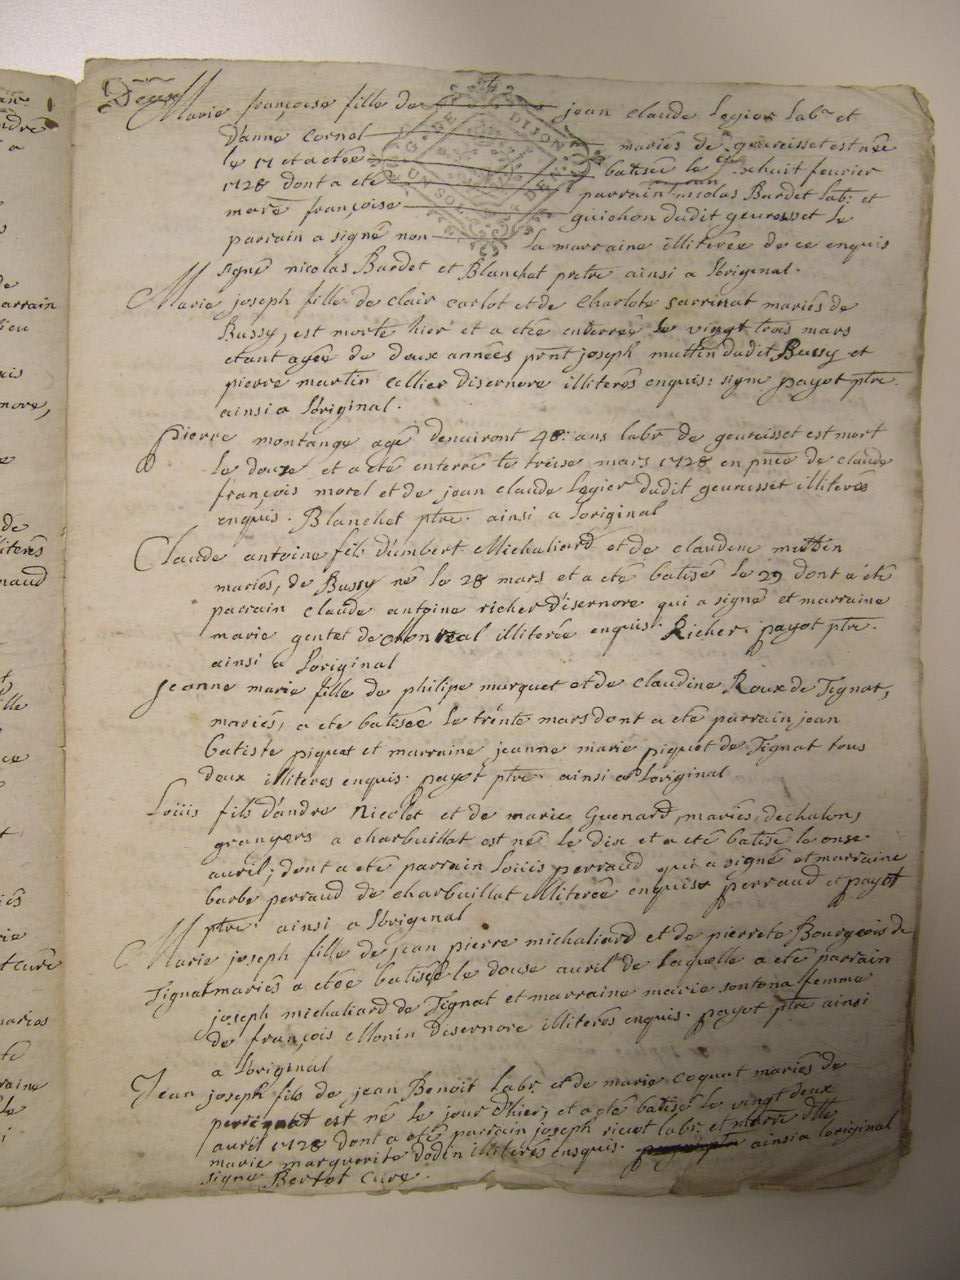 Marie françoise fille de jean claude Legier Labr et
d'anne Cornol mariés de geureisset est née
le 17 et a etée batisée le dixhuit feurier
1728 dont a eté parrain nicolas Bardet Labr: et
mare françoise guichon dudit geureisset le
parrain a signé non la marraine illiterée de ce enquis
signé nicolas Bardet et Blanchet pretre ainsi a Loriginal.
Marie joseph fille de clair carlot et de charlote sarrinat mariés de
Bussy, est morte hier et a etée enterrée le vingt trois mars
etant agée de deux années prnt joseph muttin dudit Bussy et
pierre martin cellier disernore illiterés enquis: signé payot ptre.
ainsi a Loriginal.
pierre montange agé denuiront 48: ans labr de geureisset est mort
le douze et a eté enterré le treise mars 1728 en pnce de claude
françois morel et de jean claude Legier dudit geureisset illiterés
enquis. Blanchet ptre. ainsi a Loriginal
Claude antoine fils d'umbert Michaliard et de claudine muttin
mariés, de Bussy né le 28 mars et a eté batisé le 29 dont a eté
parrain claude antoine richer d'isernore qui a signé et marraine
marie gentet de montreal illiterée enquis. Richer. payot ptre.
ainsi a Loriginal
Jeanne marie fille de philipe murquet et de claudine Roux de Tignat,
mariés, a etée batisée le trente mars dont a eté parrain jean
batiste piquet et marraine jeanne marie piquet de Tignat tous
deux illiteres enquis. payot ptre. ainsi a Loriginal
Loüis fils d'andre Nicolot et de marie Guenard, mariés, de chalons
grangers a charbuillat est né le dix et a eté batisé le onse
auril; dont a eté parrain Loüis perraud qui a signé et marraine
barbe perraud de charbuillat illiterée enquise perraud et payot
ptre. ainsi a Loriginal
Marie joseph fille de jean pierre michaliard et de pierrete Bourgeois de
Tignat mariés a etée batisée le douse auril de Laquelle a eté parrain
joseph michaliard de Tignat et marraine marie sontona femme
de françois Monin disernore illiterés enquis. payot ptre ainsi
a Loriginal
Jean joseph fils de jean Benoit Labr. et de marie coquat mariés de
perignat est né le jour d'hier, et a eté batisé le vingt deux
auril 1728 dont a eté parrain joseph ricot labr. et marre dlle
marie marguerite dodin illiterés ensquis. ainsi a loriginal
signé Bertot curé.